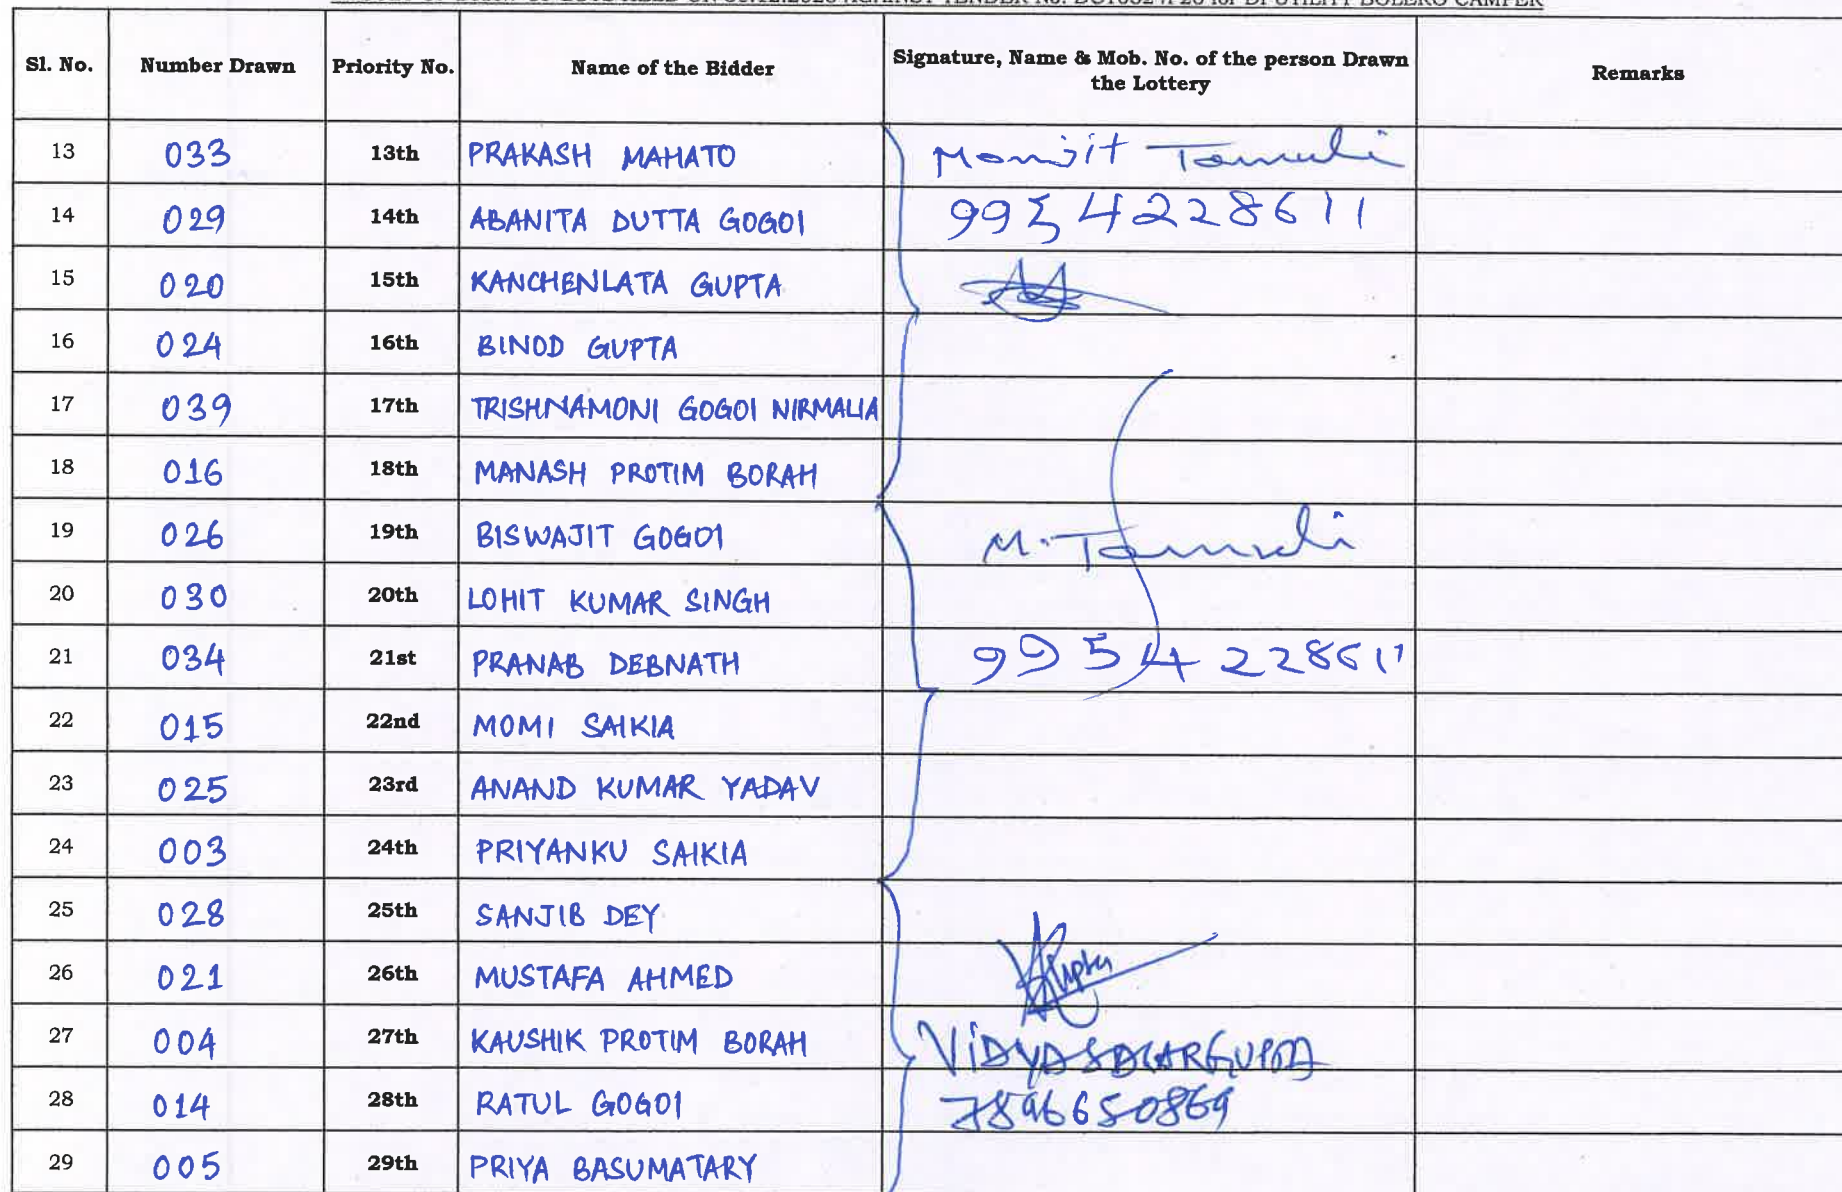 HELD ON AGAINST TENDER No. for DI UTILITY BOLERO CAMPER
Sl. No. Number Drawn Priority No. Name of the Bidder Signature, Name & Mob. No. of the person Drawn the Lottery Remarks
13 033 13th PRAKASH MAHATO Monjit Tamuli
14 029 14th ABANITA DUTTA GOGOI 9954228611
15 020 15th KANCHENLATA GUPTA
16 024 16th BINOD GUPTA
17 039 17th TRISHNAMONI GOGOI NIRMALIA
18 016 18th MANASH PROTIM BORAH
19 026 19th BISWAJIT GOGOI M. Tamuli
20 030 20th LOHIT KUMAR SINGH
21 034 21st PRANAB DEBNATH 9954228611
22 015 22nd MOMI SAIKIA
23 025 23rd ANAND KUMAR YADAV
24 003 24th PRIYANKU SAIKIA
25 028 25th SANJIB DEY
26 021 26th MUSTAFA AHMED Gupta
27 004 27th KAUSHIK PROTIM BORAH VIDYASAGAR GUPTA
28 014 28th RATUL GOGOI 7896650869
29 005 29th PRIYA BASUMATARY